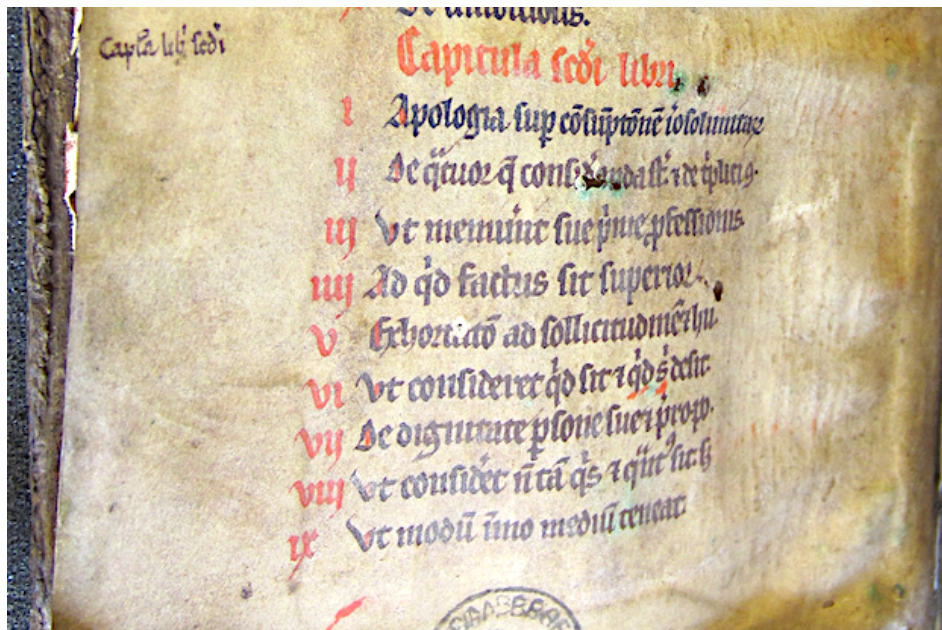 De ambitiosis.
Capl̄a lib̓ sc̄di
Capitula sc̄di libri.
i Apologia sup̱ cōsūptōnē ioſolimitar̄
ij De q̓tuor q̄ consid̓anda st̄. ⁊ de t̓plici
iij Vt memin̓it sue p̓me ꝓfessionis
iiij Ad q̓d factus sit superior.
v Exhortatō ad sollicitudinē ⁊ hu
vi Vt consideret q̓d sit ⁊ q̓d s̓ desit.
vij De dignitate ꝑsone sue ⁊ prop̱o.
viij Vt consid̓et n̄ tā q̓s ⁊ q̓nt̓ sit
ix Vt modū īmo mediū teneat.